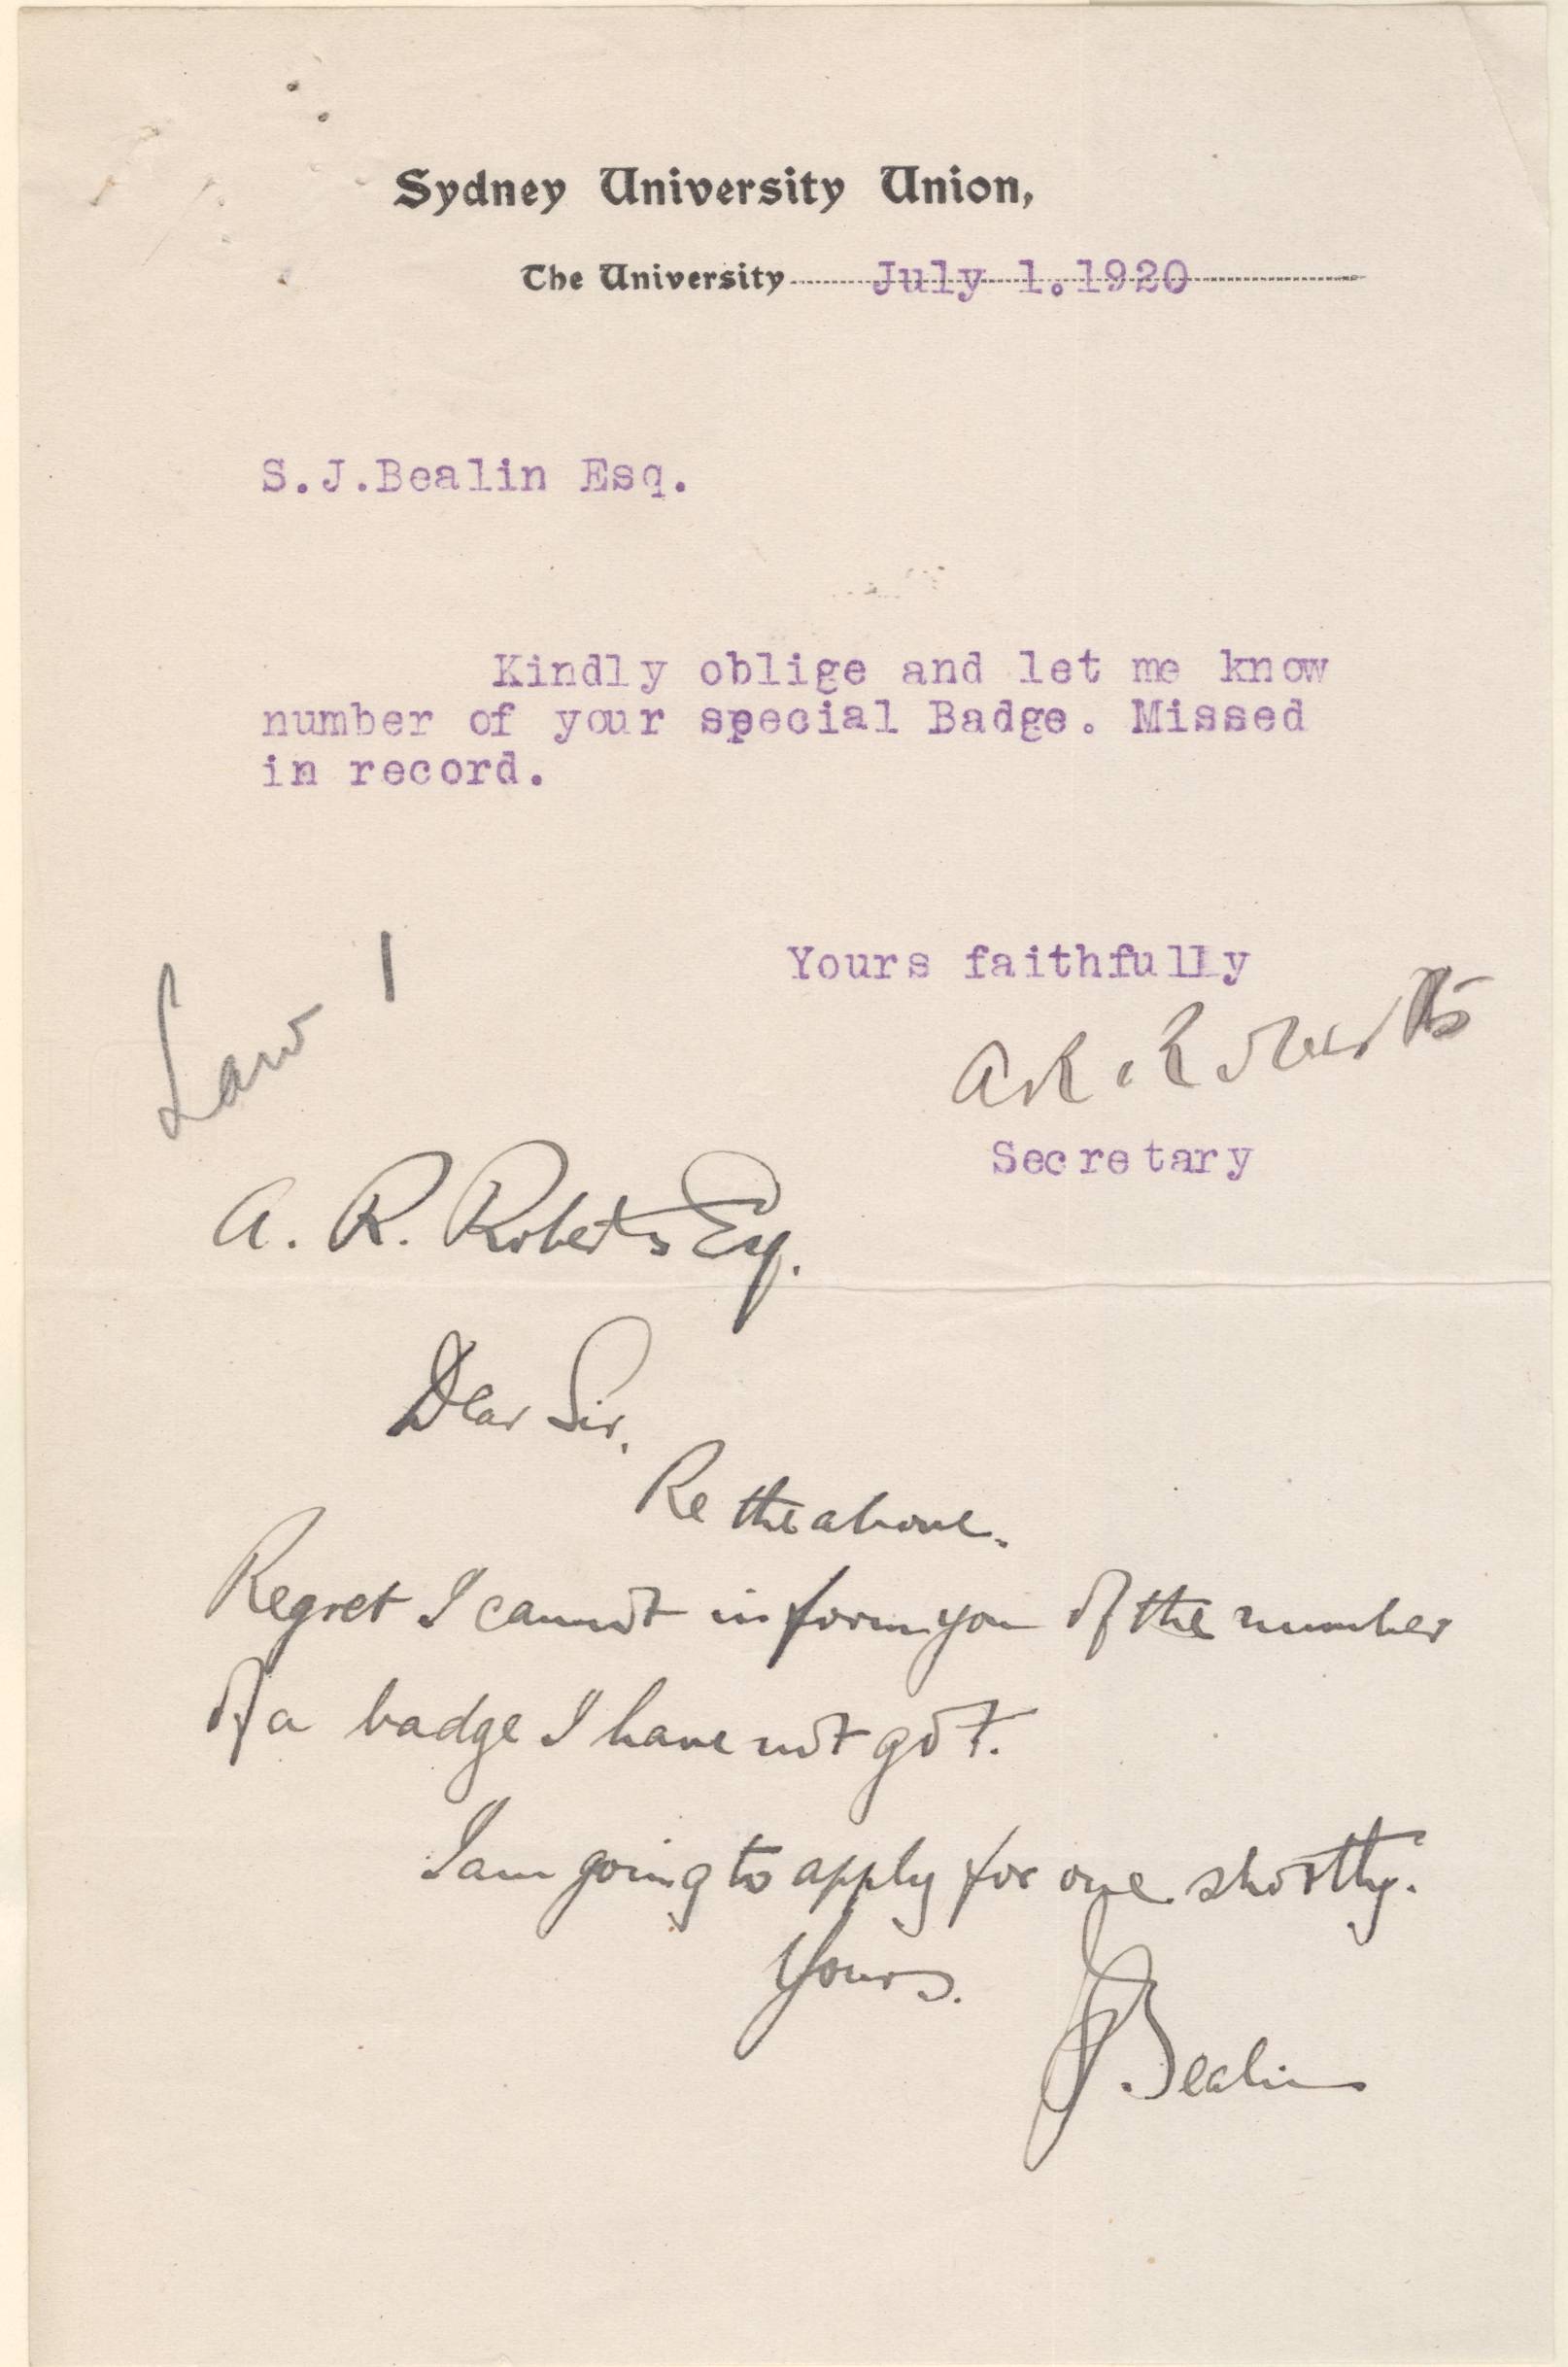 Sydney University Union,
The University July 1.1920
S.J.Bealin Esq.
Kindly oblige and let me know
number of your special Badge. Missed
in record.
Yours faithfully
A R. Roberts
Secretary
Law 1
A. R. Roberts Esq.
Dear Sir,
Re the above.
Regret I cannot inform you of the number
of a badge I have not got.
I am going to apply for one shortly.
Yours.
SJ.Bealin